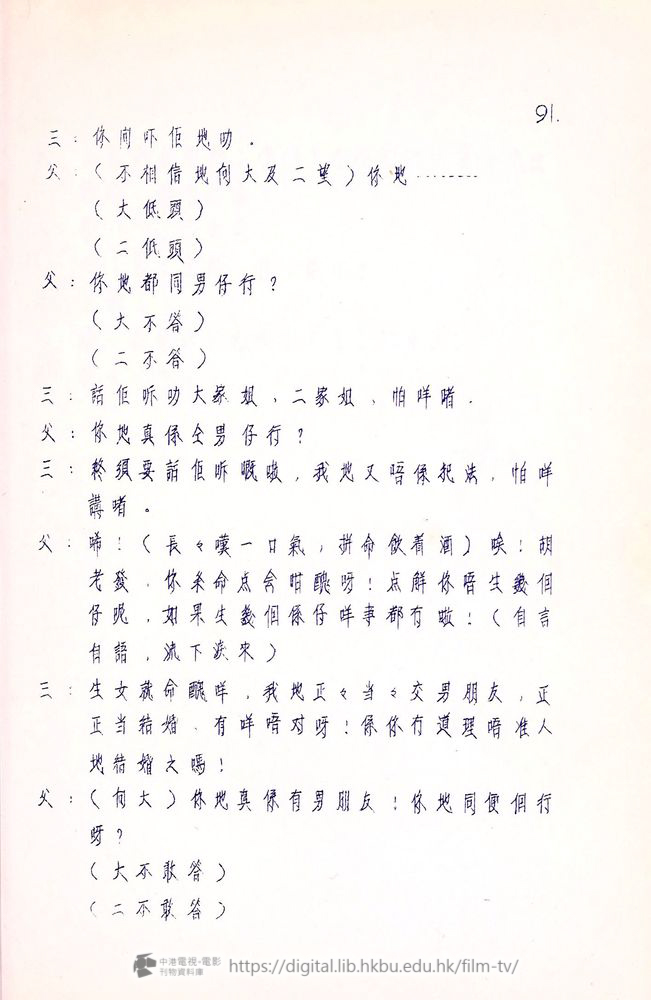 91.
三：你問吓佢地叻。
父：（不相信地向大及二望）你地………
（大低頭）
（二低頭）
父：你地都同男仔行？
（大不答）
（二不答）
三：話佢听叻大家姐、二家姐，怕咩啫．
父：你地真係全男仔行？
三：終須要話佢听嘅啦，我地又唔係犯法，怕咩
講啫。
父：唏！（長々嘆一口氣，拼命飲着酒）唉！胡
老發，你条命点会咁醜呀！点解你唔生幾個
仔呢，如果生幾個係仔咩事都冇啦！（自言
自語，流下淚來）
三：生女就命醜咩，我地正々当々交男朋友，正
正当結婚，有咩唔对呀！係你冇道理唔准人
地結婚之嗎！
父：（向大）你地真係有男朋友！你地同便個行
呀？
（大不敢答）
（二不敢答）
中港電視·電影
刊物資料庫
https://digital.lib.hkbu.edu.hk/film-tv/